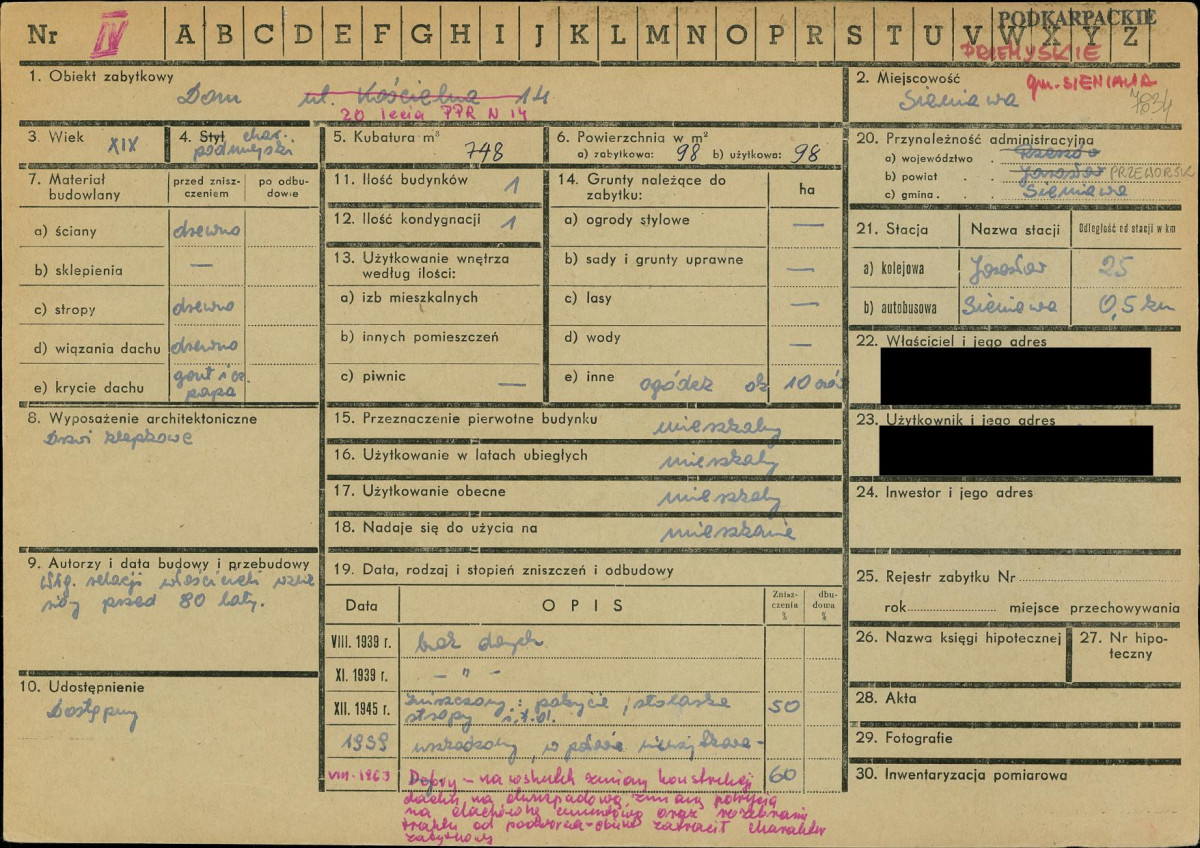 Nr IV A B C D E F G H I J K L M N O P R S T U V W X Y Z
PODKARPACKIE
PRZEMYSKIE
1. Obiekt zabytkowy
Dom ul. Kościelna 14
20 lecia PPR N 14
2. Miejscowość
gm. SIENIAWA
Sieniawa
7834
3. Wiek XIX
4. Styl char. podmiejski
5. Kubatura m³
748
6. Powierzchnia w m²
a) zabytkowa: 98 b) użytkowa: 98
7. Materiał budowlany
przed zniszczeniem
po odbudowie
a) ściany drewno
b) sklepienia —
c) stropy drewno
d) wiązania dachu drewno
e) krycie dachu gont i cz. papa
8. Wyposażenie architektoniczne
Drzwi klepkowe
9. Autorzy i data budowy i przebudowy
Wg. relacji właścicieli wznie
siony przed 80 laty.
10. Udostępnienie
Dostępny
11. Ilość budynków 1
12. Ilość kondygnacji 1
13. Użytkowanie wnętrza
według ilości:
a) izb mieszkalnych
b) innych pomieszczeń
c) piwnic —
14. Grunty należące do
zabytku:
ha
a) ogrody stylowe —
b) sady i grunty uprawne —
c) lasy —
d) wody —
e) inne ogódek ok 10 arów
15. Przeznaczenie pierwotne budynku mieszkalny
16. Użytkowanie w latach ubiegłych mieszkalny
17. Użytkowanie obecne mieszkalny
18. Nadaje się do użycia na mieszkanie
19. Data, rodzaj i stopień zniszczeń i odbudowy
Data
OPIS
Zniszczenia %
dbudowa %
VIII. 1939 r. brak danych
XI. 1939 r. — " —
XII. 1945 r. Zniszczony: pokrycie, stolarka 50
stropy i.t.d.
1959 uszkodzony, w połowie
VIII-1963 Dobry - na wskutek zmiany konstrukcji 60
dachu na dwuspadową, zmianą pokrycia
na dachówkę cementową oraz rozebrania
od podwórza - obiekt zatracił charakter
zabytkowy
20. Przynależność administracyjna
a) województwo Rzeszów
b) powiat Jarosław PRZEWORSK
c) gmina Sieniawa
21. Stacja
Nazwa stacji
Odległość od stacji w km
a) kolejowa Jarosław 25
b) autobusowa Sieniawa 0,5 km
22. Właściciel i jego adres
23. Użytkownik i jego adres
24. Inwestor i jego adres
25. Rejestr zabytku Nr
rok miejsce przechowywania
26. Nazwa księgi hipotecznej
27. Nr hipoteczny
28. Akta
29. Fotografie
30. Inwentaryzacja pomiarowa